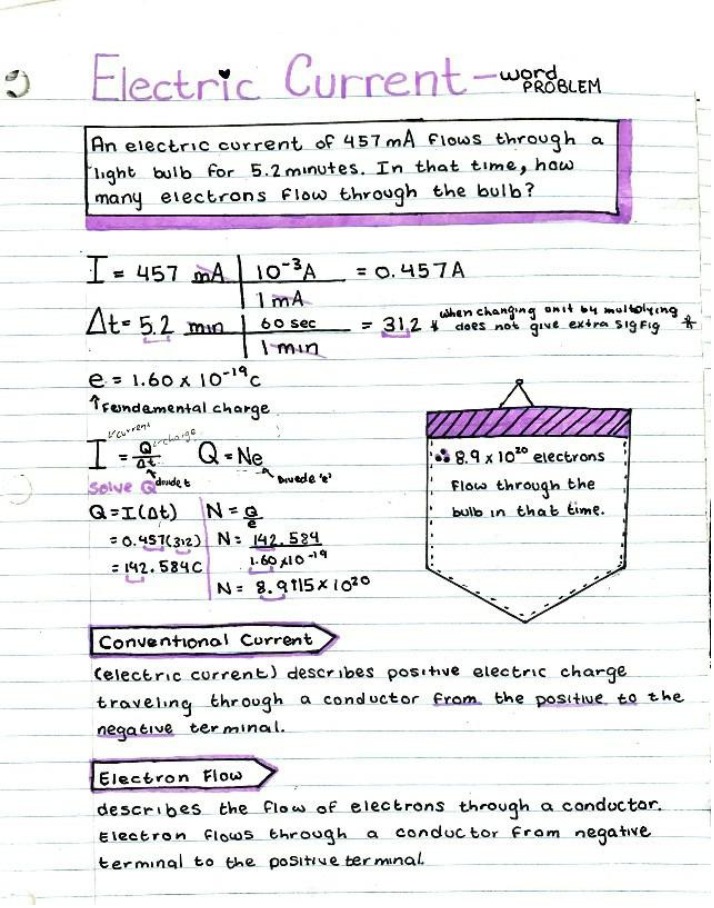 Electric Current - word PROBLEM
An electric current of 457 mA flows through a
light bulb for 5.2 minutes. In that time, how
many electrons flow through the bulb?
I = 457 mA | 10⁻³A = 0.457A
1 mA
Δt = 5.2 min | 60 sec = 312 * when changing unit by multolying
does not give extra Sig Fig *
1 min
e = 1.60 x 10⁻¹⁹c
↑ Fundemental charge
current
charge
I = Q/Δt Q = Ne
divide t
Divede 'e'
Solve Q
Q = I(Δt)
= 0.457(312)
= 142.584C
N = Q/e
N = 142.584
1.60 x10⁻¹⁹
N = 8.9115 x 10²⁰
∴ 8.9 x 10²⁰ electrons
flow through the
bulb in that time.
Conventional Current
(electric current) describes positive electric charge
traveling through a conductor from the positive to the
negative terminal.
Electron Flow
describes the flow of electrons through a conductor.
Electron flows through a conductor from negative
terminal to the positive terminal.